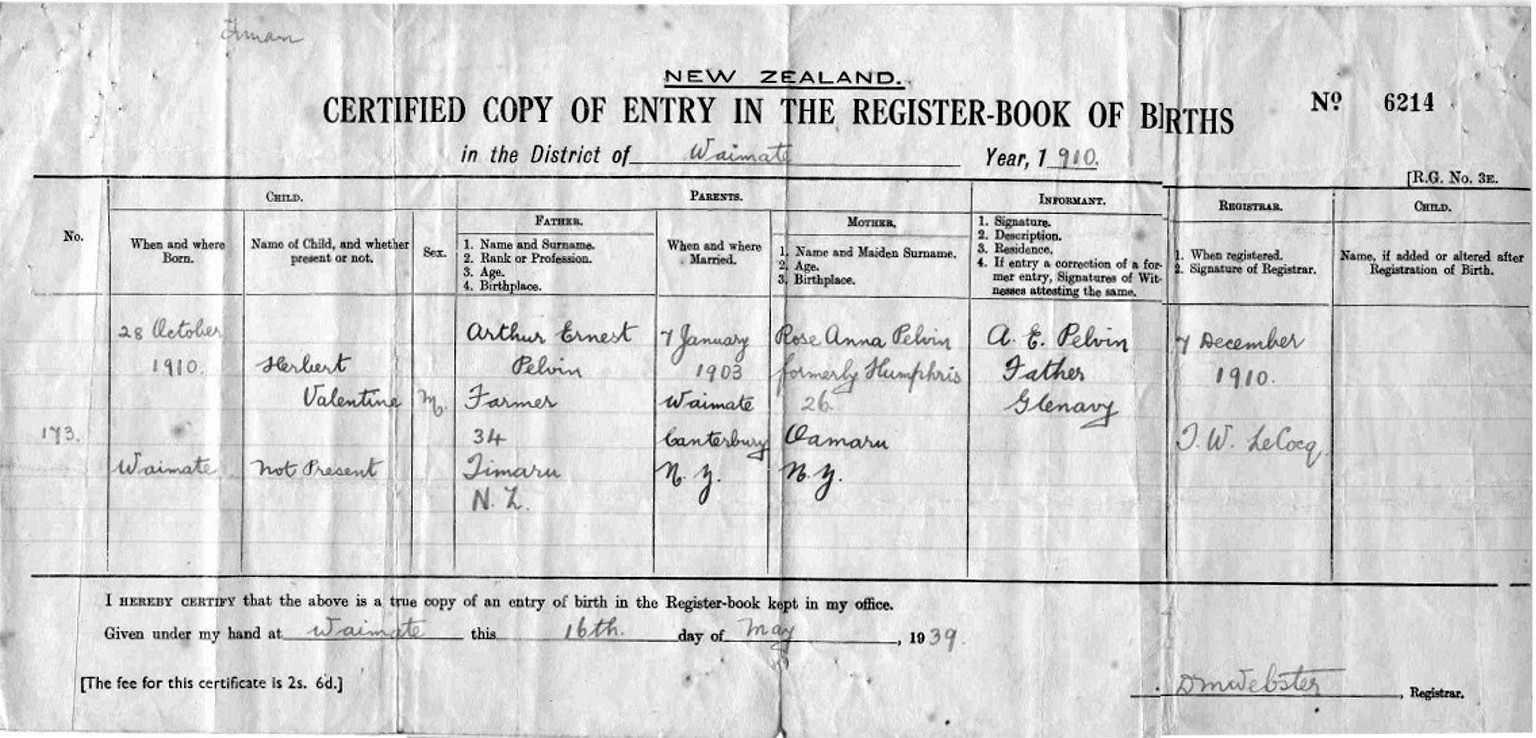 NEW ZEALAND.
CERTIFIED COPY OF ENTRY IN THE REGISTER-BOOK OF BIRTHS
Nº 6214
in the District of Waimate Year, 1910.
[R.G. No. 3E.
No.
CHILD.
When and where Born.
Name of Child, and whether present or not.
Sex.
PARENTS.
FATHER.
1. Name and Surname.
2. Rank or Profession.
3. Age.
4. Birthplace.
When and where Married.
MOTHER.
1. Name and Maiden Surname.
2. Age.
3. Birthplace.
INFORMANT.
1. Signature.
2. Description.
3. Residence.
4. If entry a correction of a for-
mer entry, Signatures of Wit-
nesses attesting the same.
REGISTRAR.
1. When registered.
2. Signature of Registrar.
CHILD.
Name, if added or altered after
Registration of Birth.
173.
28 October
1910.
Waimate
Herbert
Valentine
Not Present
M.
Arthur Ernest
Pelvin
Farmer
34
Timaru
N. Z.
7 January
1903
Waimate
Canterbury
N. Z.
Rose Anna Pelvin
formerly Humphris
26
Oamaru
N. Z.
A. E. Pelvin
Father
Glenavy
7 December
1910.
T. W. LeCocq
I HEREBY CERTIFY that the above is a true copy of an entry of birth in the Register-book kept in my office.
Given under my hand at Waimate this 16th. day of May, 1939.
[The fee for this certificate is 2s. 6d.]
DMWebster, Registrar.